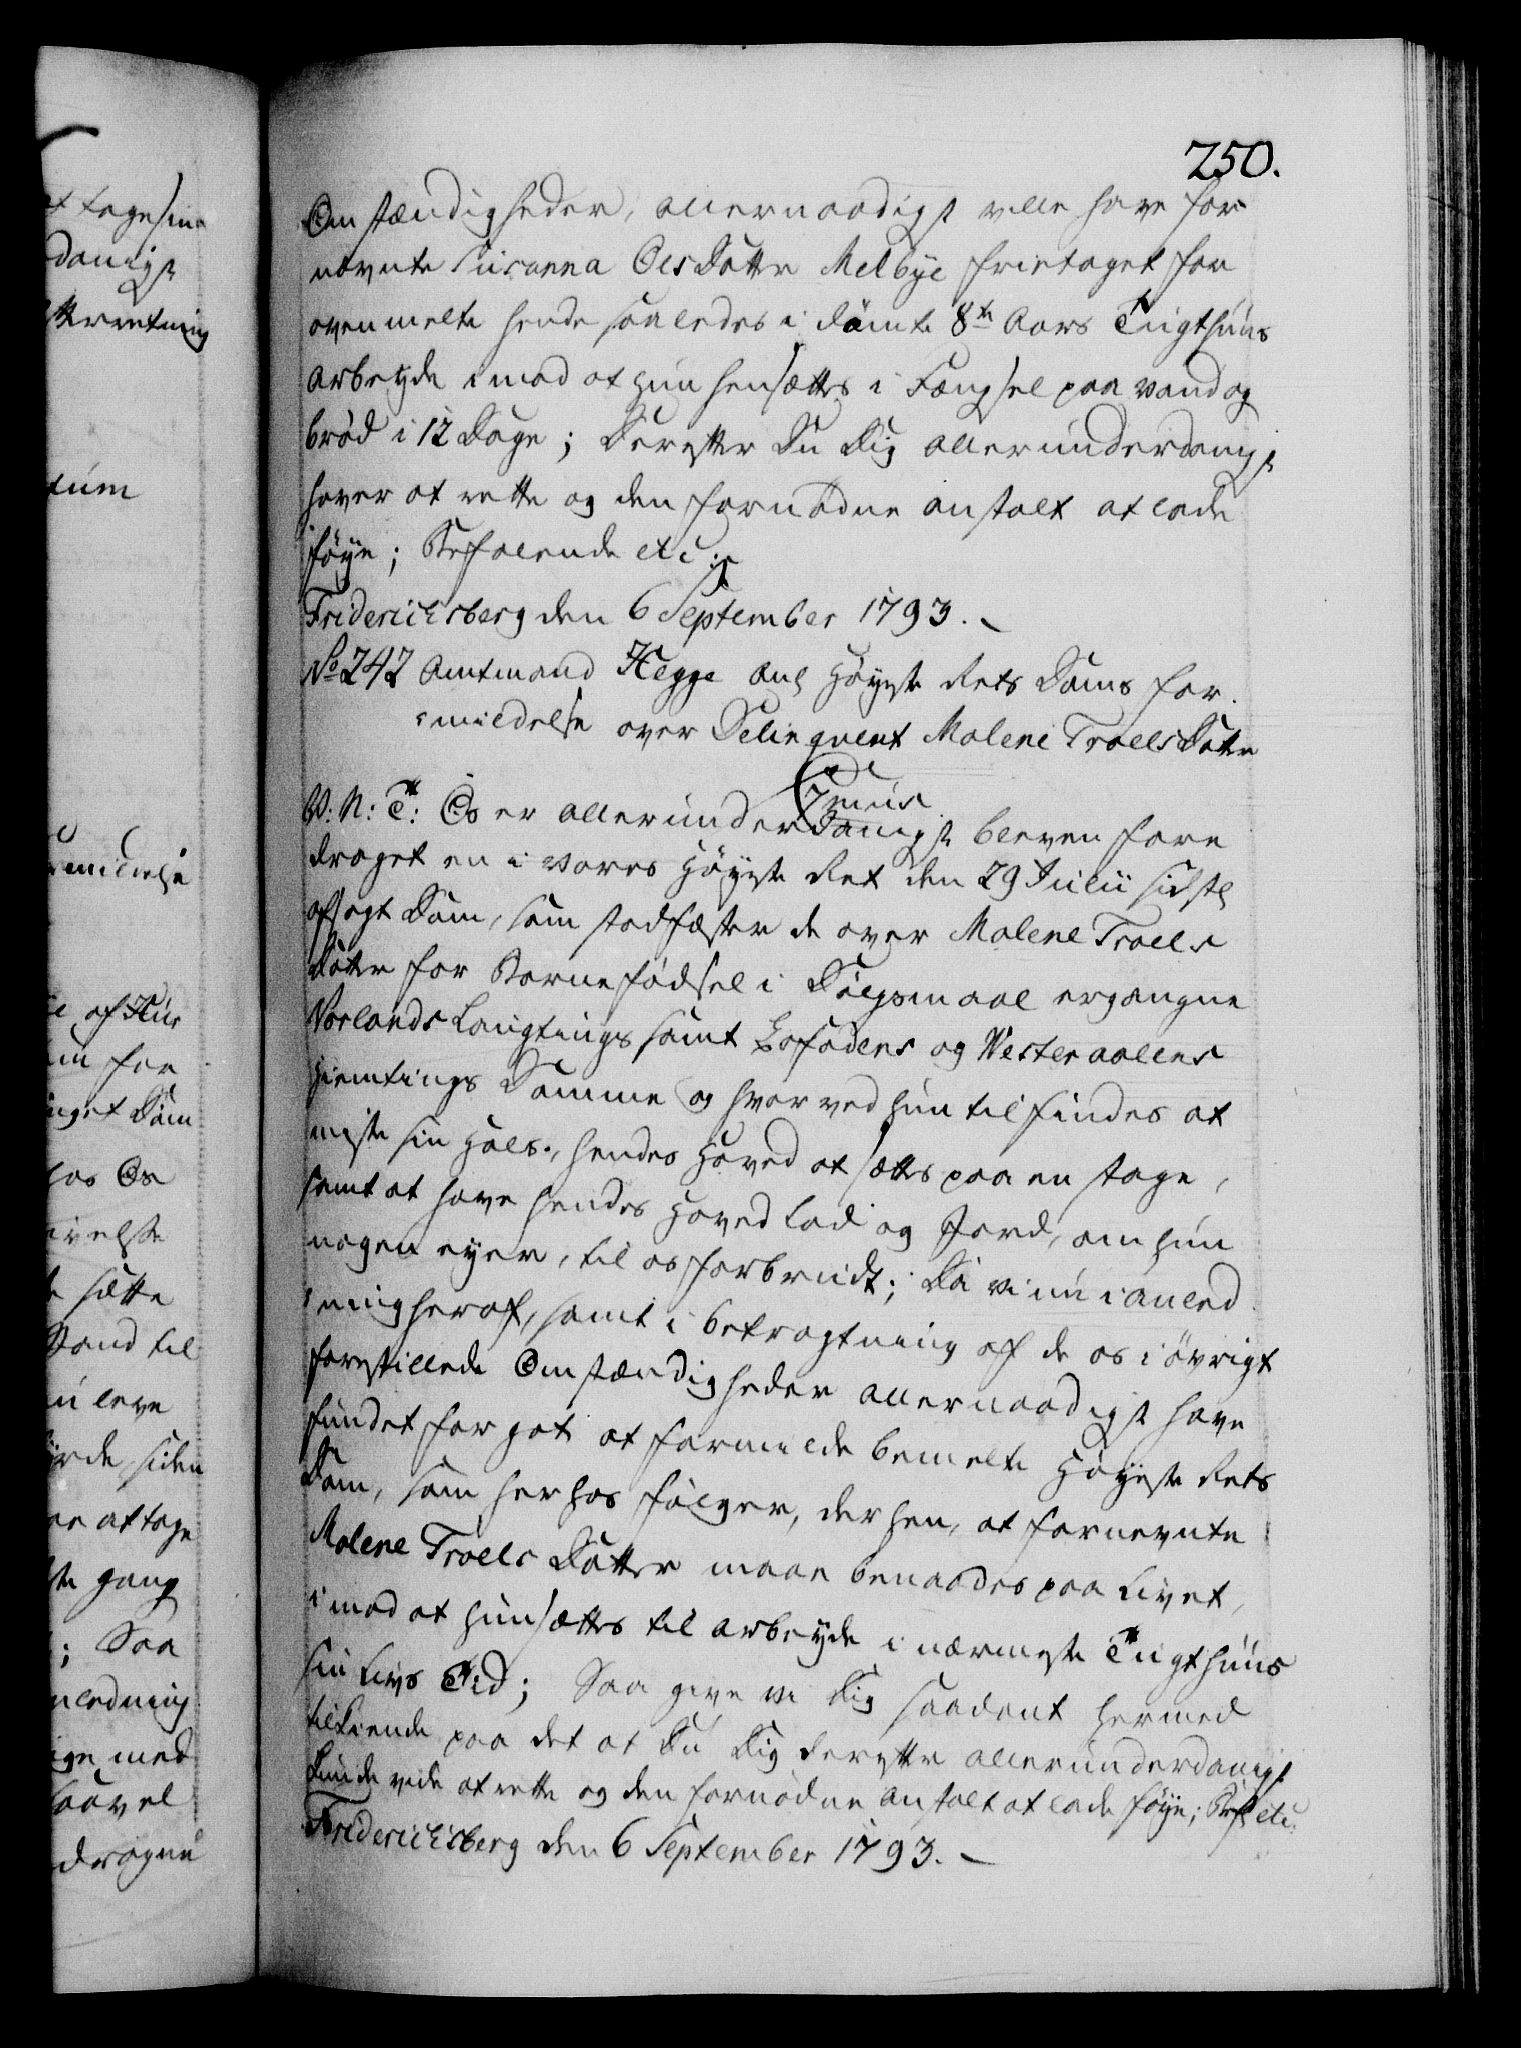 250.
Omstændigheder, allernaadigst ville have for
nevnte Susanna OlsDatter Melbye frietaget for
ovenmelte hende saaledes i dømte 8te Aars Tugthuus
arbeyde imod at hun hensættes i Fængsel paa vand og
brød i 12 Dage; Derefter Du Dig allerunderdanigst
haver at rette og den fornødne anstalt at lade
føye; Befalende etc:
Friderichsberg den 6 September 1793.
No 242 Amtmand Hegge anl Høyeste Rets Doms for
mildelse over Delinquent Malene TroelsDatter
V: N: T: Os er allerunderdanigst bleven fore
draget en i vores Høyeste Ret den 29 Julii sidstl
afsagt Dom, som stadfæster de over Malene Troels
Datter for Barnefødsel i Dølgsmaal ergangne
Norlands Laugtings samt Lofodens og Westeraalens
Hiemtings Domme og hvorved hun tilfindes at
miste sin Hals, hendes Hoved at sættes paa en stage,
samt at have hendes Hoved lod og Jord, om hun
nogen eyer, til os forbrudt; Da vi nu i anled
ning heraf, samt i betragtning af de os i øvrigt
forestillede Omstændigheder allernaadigst have
fundet for got at formilde bemelte Høyeste Rets
Dom, som herhos følger, derhen, at fornevnte
Malene Troels Datter maae benaades paa Livet,
imod at hun sættes til arbeyde i nærmeste Tugthuus
sin Livs Tid; Saa give vi Dig saadant hermed
tilkiende paa det at Du Dig derefter allerunderdanigst
kunde vide at rette og den fornødne Anstalt at lade føye; Bef etc.
Friderichsberg den 6 September 1793.